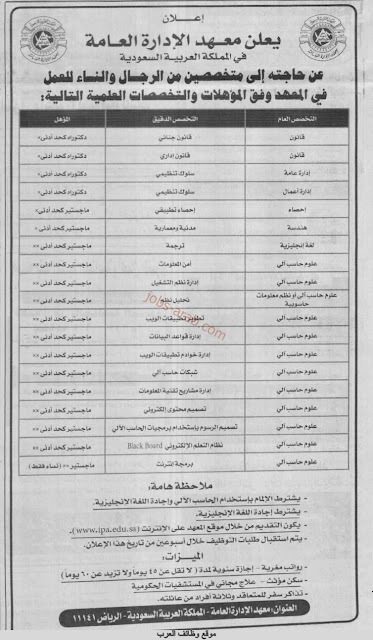 إعلان
يعلن معهد الإدارة العامة
في المملكة العربية السعودية
عن حاجته إلى متخصصين من الرجال والنساء للعمل
في المعهد وفق المؤهلات والتخصصات العلمية التالية:
التخصص العام التخصص الدقيق المؤهل
قانون قانون جنائي دكتوراه كحد أدنى*
قانون قانون إداري دكتوراه كحد أدنى*
إدارة عامة سلوك تنظيمي دكتوراه كحد أدنى*
إدارة أعمال سلوك تنظيمي دكتوراه كحد أدنى*
إحصاء إحصاء تطبيقي ماجستير كحد أدنى*
هندسة مدنية ومعمارية ماجستير كحد أدنى*
لغة إنجليزية ترجمة ماجستير كحد أدنى**
علوم حاسب آلي أمن المعلومات ماجستير كحد أدنى**
علوم حاسب آلي إدارة نظم التشغيل ماجستير كحد أدنى**
علوم حاسب آلي أو نظم معلومات حاسوبية تحليل نظم ماجستير كحد أدنى**
علوم حاسب آلي تطوير تطبيقات الويب ماجستير كحد أدنى**
علوم حاسب آلي إدارة قواعد البيانات ماجستير كحد أدنى**
علوم حاسب آلي إدارة خوادم تطبيقات الويب ماجستير كحد أدنى**
علوم حاسب آلي شبكات حاسب آلي ماجستير كحد أدنى**
علوم حاسب آلي إدارة مشاريع تقنية المعلومات ماجستير كحد أدنى**
علوم حاسب آلي تصميم محتوى إلكتروني ماجستير كحد أدنى**
علوم حاسب آلي تصميم الرسوم باستخدام برمجيات الحاسب الآلي ماجستير كحد أدنى**
علوم حاسب آلي نظام التعلم الإلكتروني Black Board ماجستير كحد أدنى**
علوم حاسب آلي برمجة إنترنت ماجستير** (نساء فقط)
jobs-arab.com
ملاحظة هامة:
- يشترط الإلمام باستخدام الحاسب الآلي وإجادة اللغة الإنجليزية.
- يشترط إجادة اللغة الإنجليزية.
- يكون التقديم من خلال موقع المعهد على الإنترنت (www.ipa.edu.sa).
- يتم استقبال طلبات التوظيف خلال أسبوعين من تاريخ هذا الإعلان.
الميزات:
- رواتب مغرية - إجازة سنوية لمدة (لا تقل عن ٤٥ يوماً ولا تزيد عن ٦٠ يوماً)
- سكن مؤثث - علاج مجاني في المستشفيات الحكومية
- تذاكر سفر للمتعاقد وثلاثة أفراد من عائلته.
العنوان: معهد الإدارة العامة - المملكة العربية السعودية - الرياض ١١١٤١
موقع وظائف العرب